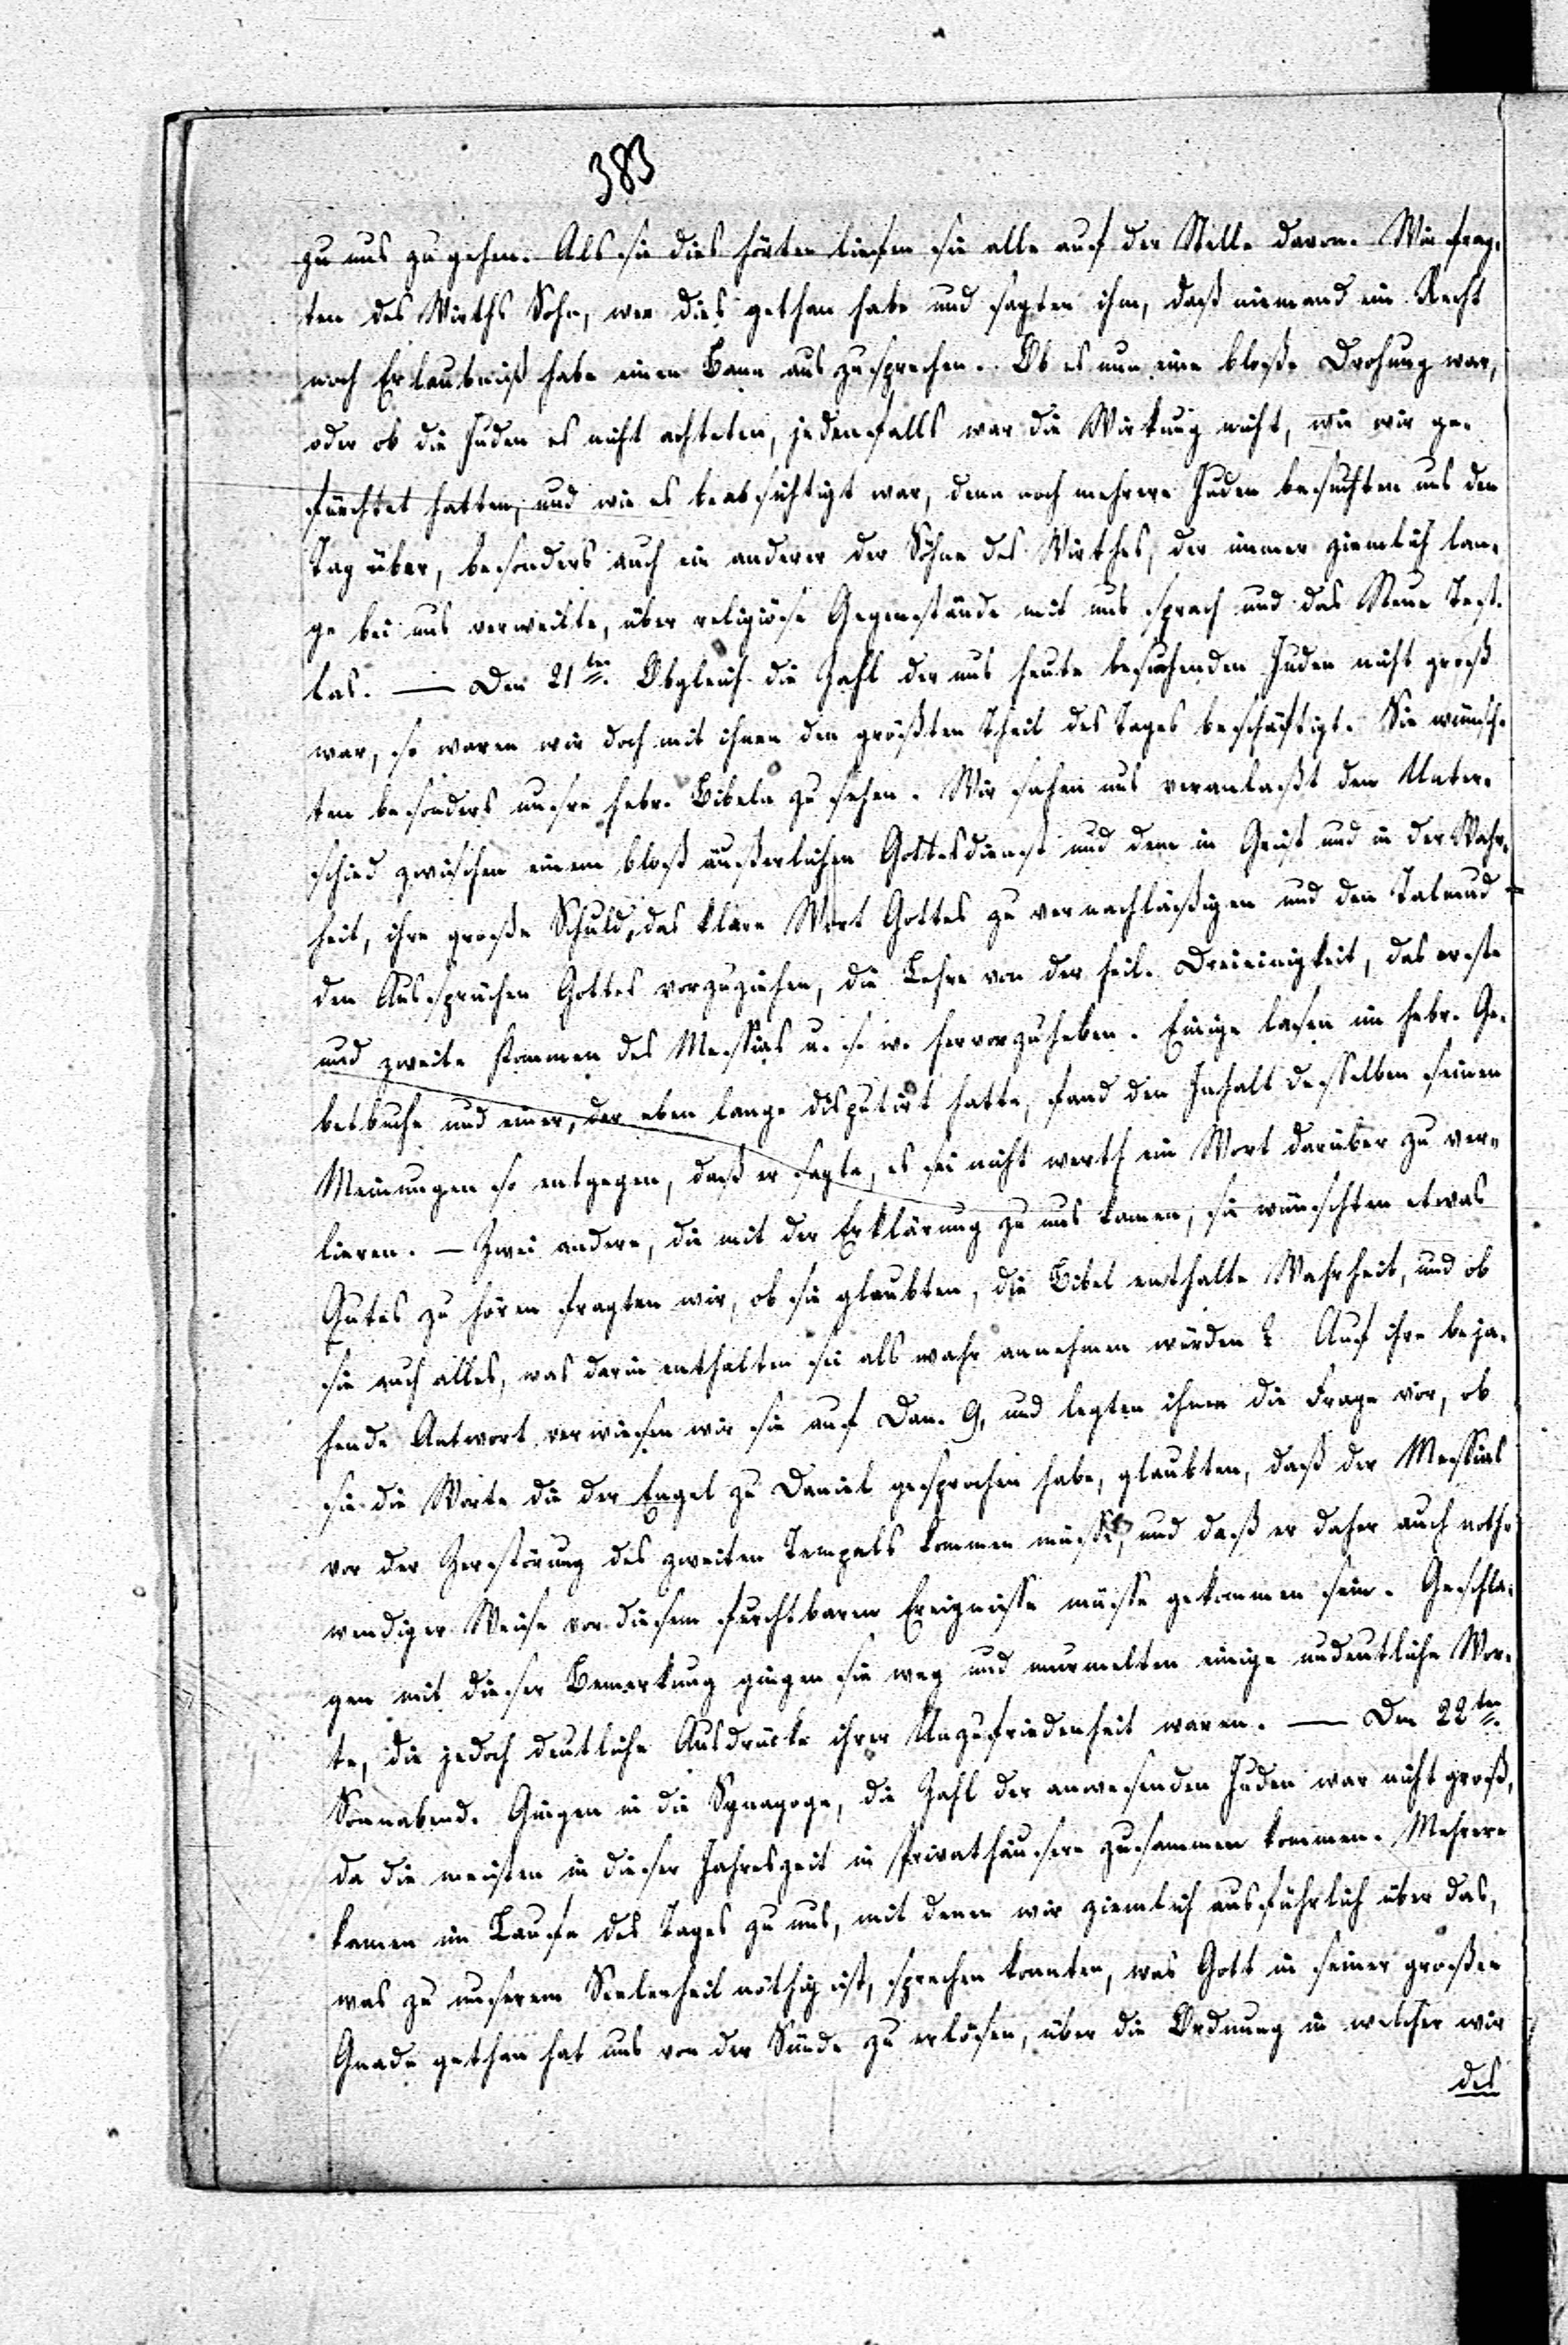 383
zu uns zu gehen. Als sie dies hörten liefen sie alle auf der Stelle davon. Wir frag-
ten des Wirths Sohn, wer dies gethan habe und sagten ihm, daß niemand ein Recht
noch Erlaubniß habe einen Bann auszusprechen. Ob es nun eine bloße Drohung war,
oder ob die Juden es nicht achteten, jedenfalls war die Wirkung nicht, wie wir ge-
fürchtet hatten, und wie es beabsichtigt war, denn noch mehrere Juden besuchten uns den
Tag über, besonders auch ein anderer der Söhne des Wirthes, der immer ziemlich lan-
ge bei uns verweilte, über religiöse Gegenstände mit uns sprach und das Neue Test.
las. — Den 21ten. Obgleich die Zahl der uns heute besuchenden Juden nicht groß
war, so waren wir doch mit ihnen den größten Theil des Tages beschäftigt. Sie wünsch-
ten besonders unsre hebr. Bibeln zu sehen. Wir sahen uns veranlaßt den Unter-
schied zwischen einem bloß äußerlichen Gottesdienst und dem in Geist und in der Wahr-
heit, ihre große Schuld, das klare Wort Gottes zu vernachläßigen und den Talmud
den Aussprüchen Gottes vorzuziehen, die Lehre von der heil. Dreieinigkeit, das erste
und zweite Kommen des Messias u. s. w. hervorzuheben. Einige lasen im hebr. Ge-
betbuche und einer, der eben lange disputirt hatte, fand den Inhalt desselben seinen
Meinungen so entgegen, daß er sagte, es sei nicht werth ein Wort darüber zu ver-
lieren. — Zwei andere, die mit der Erklärung zu uns kamen, sie wünschten etwas
Gutes zu hören fragten wir, ob sie glaubten, die Bibel enthalte Wahrheit, und ob
sie auch alles, was darin enthalten sei als wahr annehmen würden? Auf ihre beja-
hende Antwort verwiesen wir sie auf Dan. 9, und legten ihnen die Frage vor, ob
sie die Worte die der Engel zu Daniel gesprochen habe, glaubten, daß der Messias
vor der Zerstörung des zweiten Tempels kommen müsse, und daß er daher auch noth-
wendiger Weise vor diesem furchtbaren Ereignisse müsse gekommen sein. Geschla-
gen mit dieser Bemerkung gingen sie weg und murmelten einige undeutliche Wor-
te, die jedoch deutliche Ausdrücke ihrer Unzufriedenheit waren. — Den 22ten.
Sonnabend. Gingen in die Synagoge, die Zahl der anwesenden Juden war nicht groß,
da die meisten in dieser Jahreszeit in Privathäusern zusammen kommen. Mehrere
kamen im Laufe des Tages zu uns, mit denen wir ziemlich ausführlich über das,
was zu unserem Seelenheil nöthig ist, sprechen konnten, was Gott in seiner großen
Gnade gethan hat uns von der Sünde zu erlösen, über die Ordnung in welcher wir
des